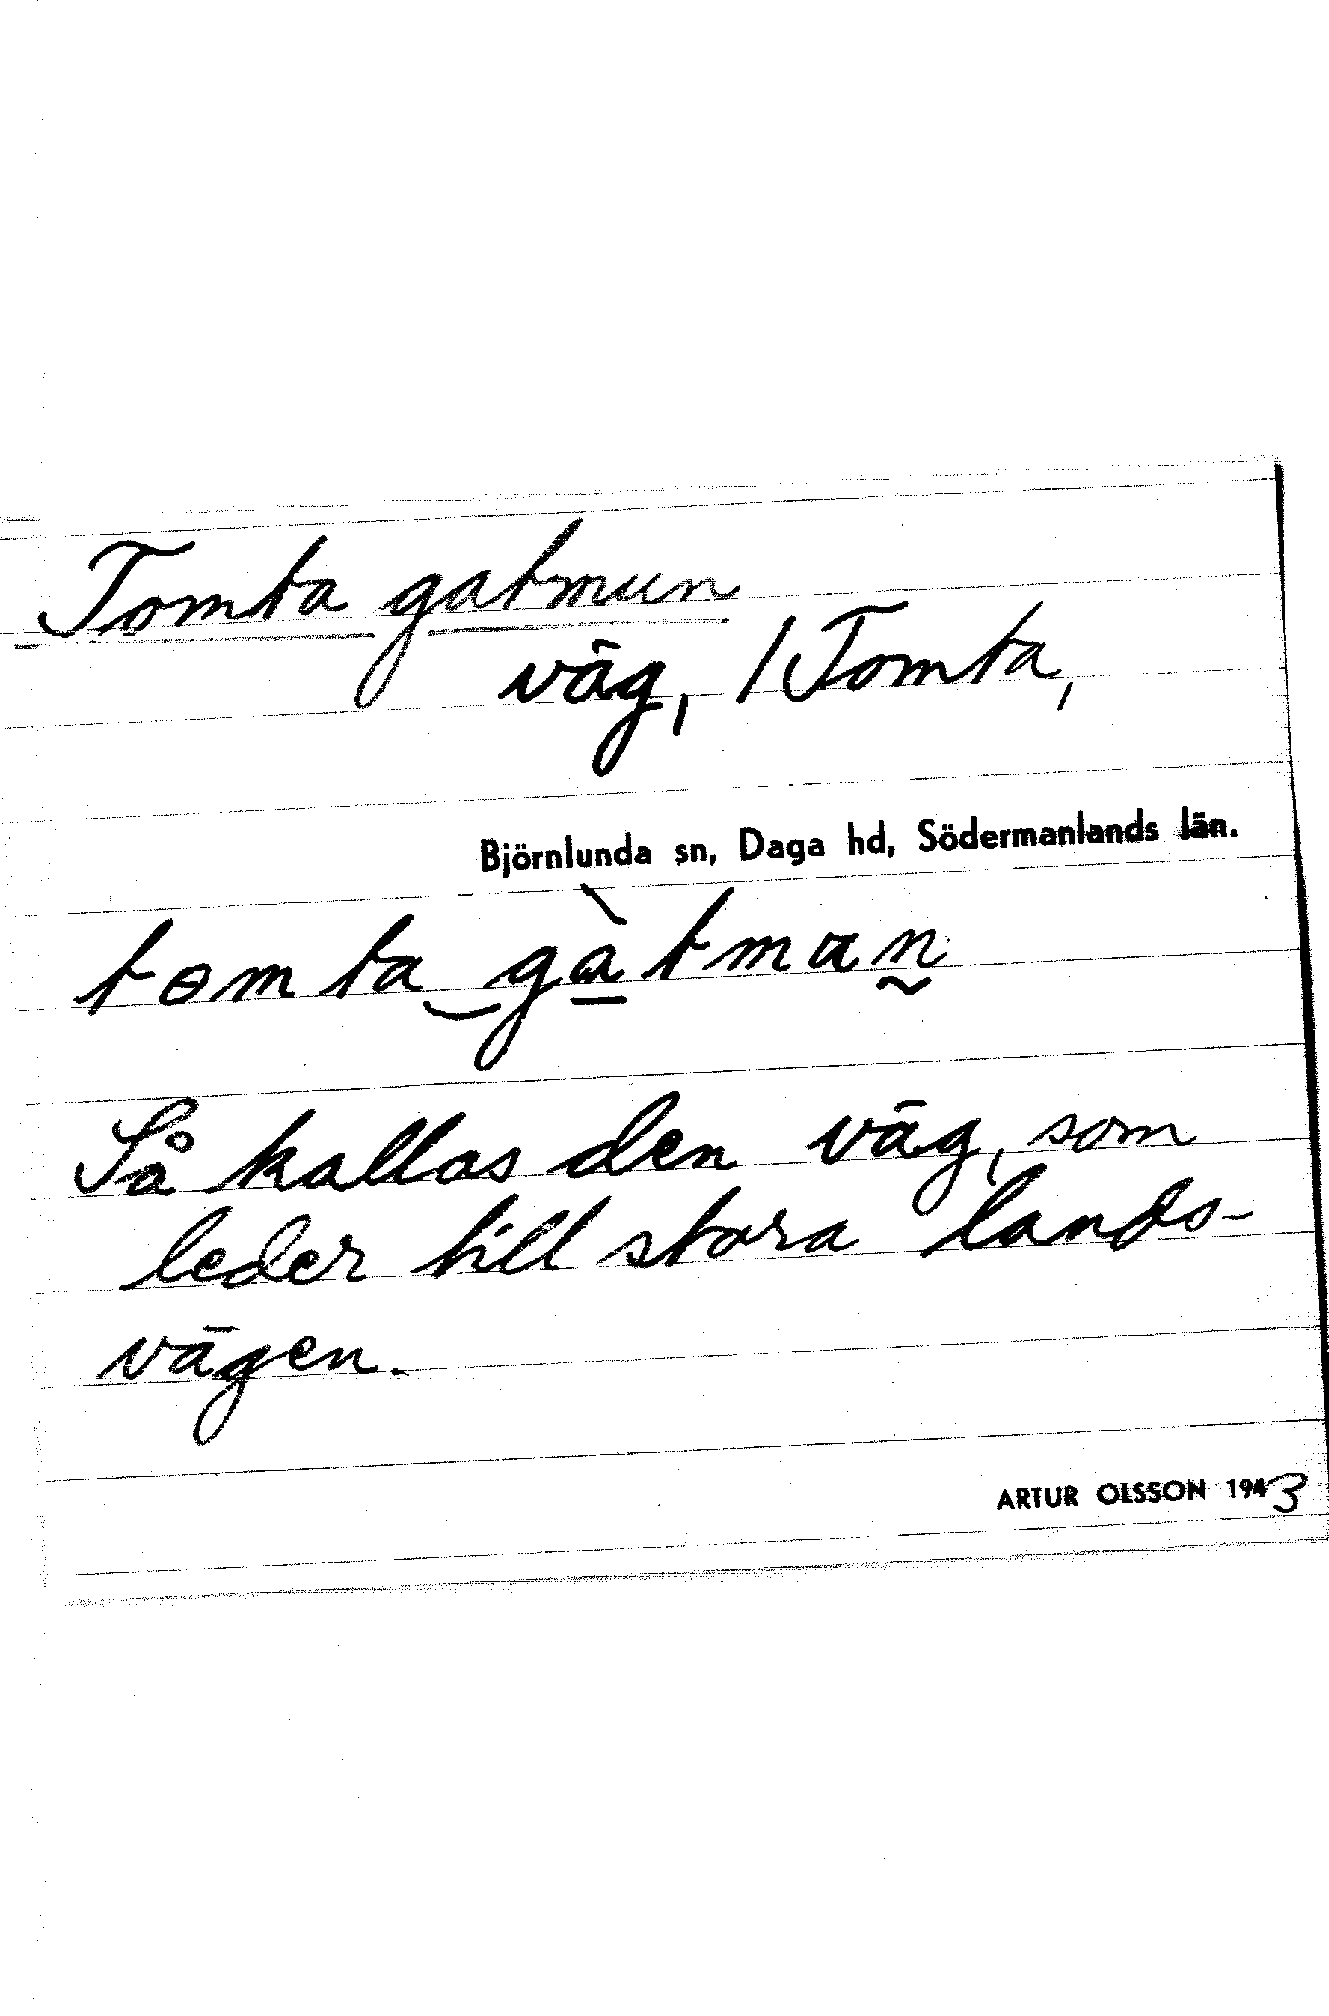 Tomta gatmun
väg, /Tomta,
Björnlunda sn, Daga hd, Södermanlands län.
tɵmta‿gàtman̰
Så kallas den väg, som
leder till stora lands-
vägen.
ARTUR OLSSON 1943